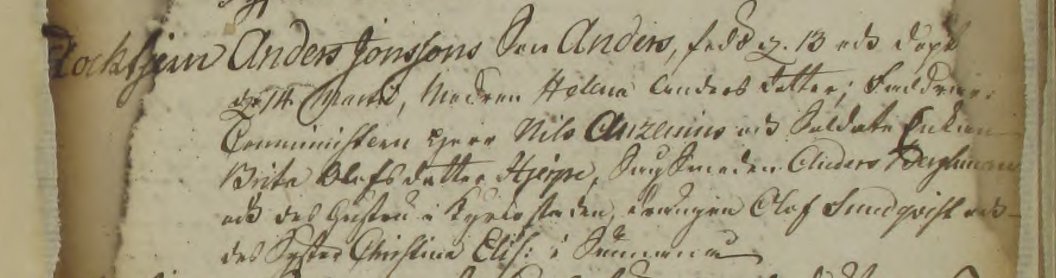 Anders Jonssons Son Anders, född d. 13 och döpt
d. 14 Martii, Modren Helena Anders dotter; Faddrar:
Comministern Herr Nils Auzenius och Soldate Enkian
Brita Olofs dotter Hjerpe, Smeden Anders Berghman
och des Hustru i Kyrio staden, Drängen Olof Sundqvist och
des Syster Christina Elis: